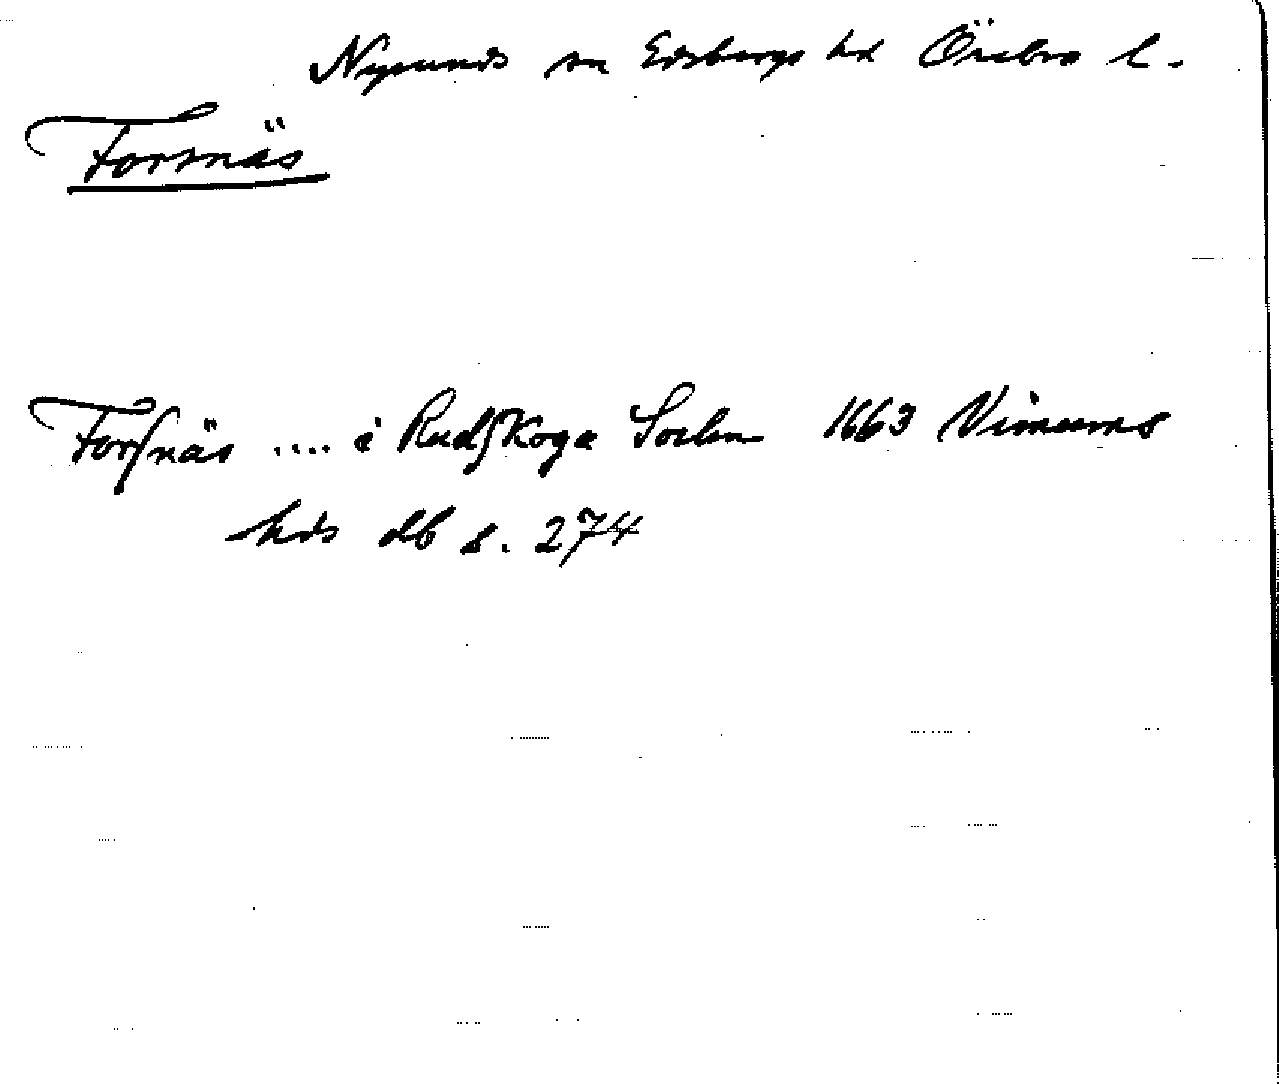 Nysunds sn Edsbergs hd Örebro l.
Forsnäs
Forſnäs .... i Rudſkoga Sochn 1663 Visnums
hds db s. 274